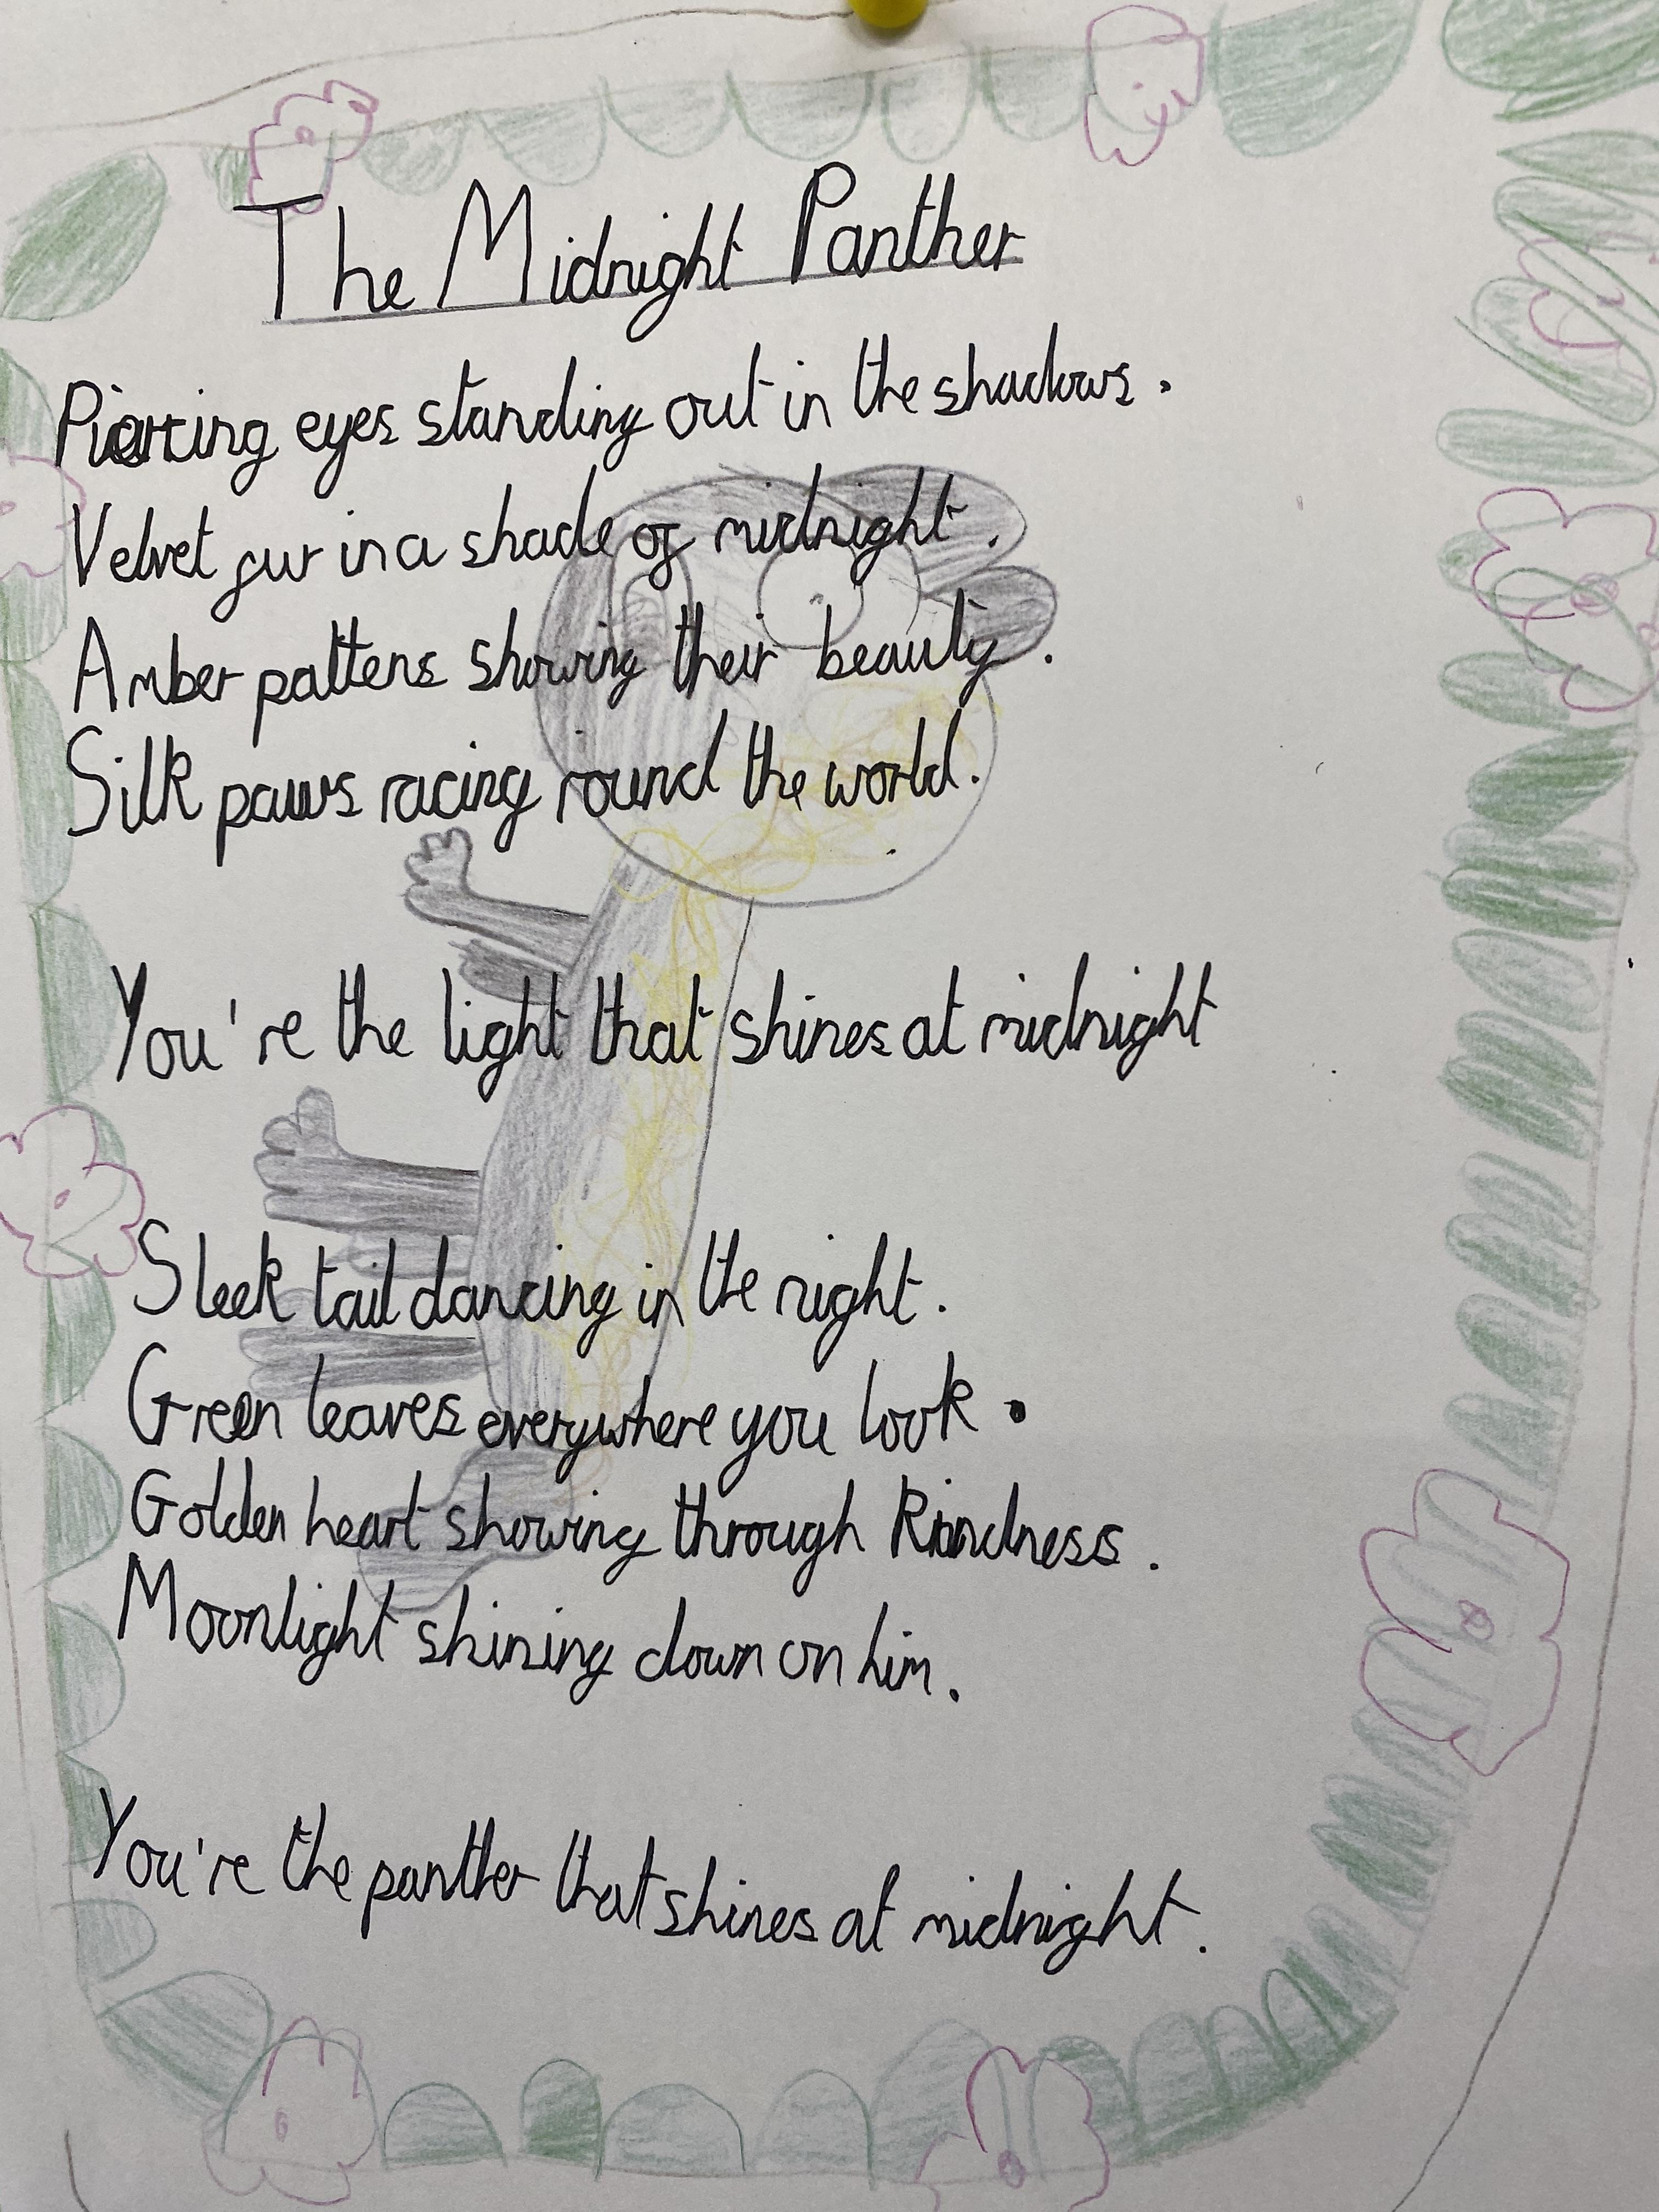 The Midnight Panther
Piercing eyes standing out in the shadows.
Velvet fur in a shade of midnight.
Amber pattens showing their beauty.
Silk paws racing round the world.
You're the light that shines at midnight
Sleek tail dancing in the night.
Green leaves everywhere you look.
Golden heart showing through kindness.
Moonlight shining down on him.
You're the panther that shines at midnight.